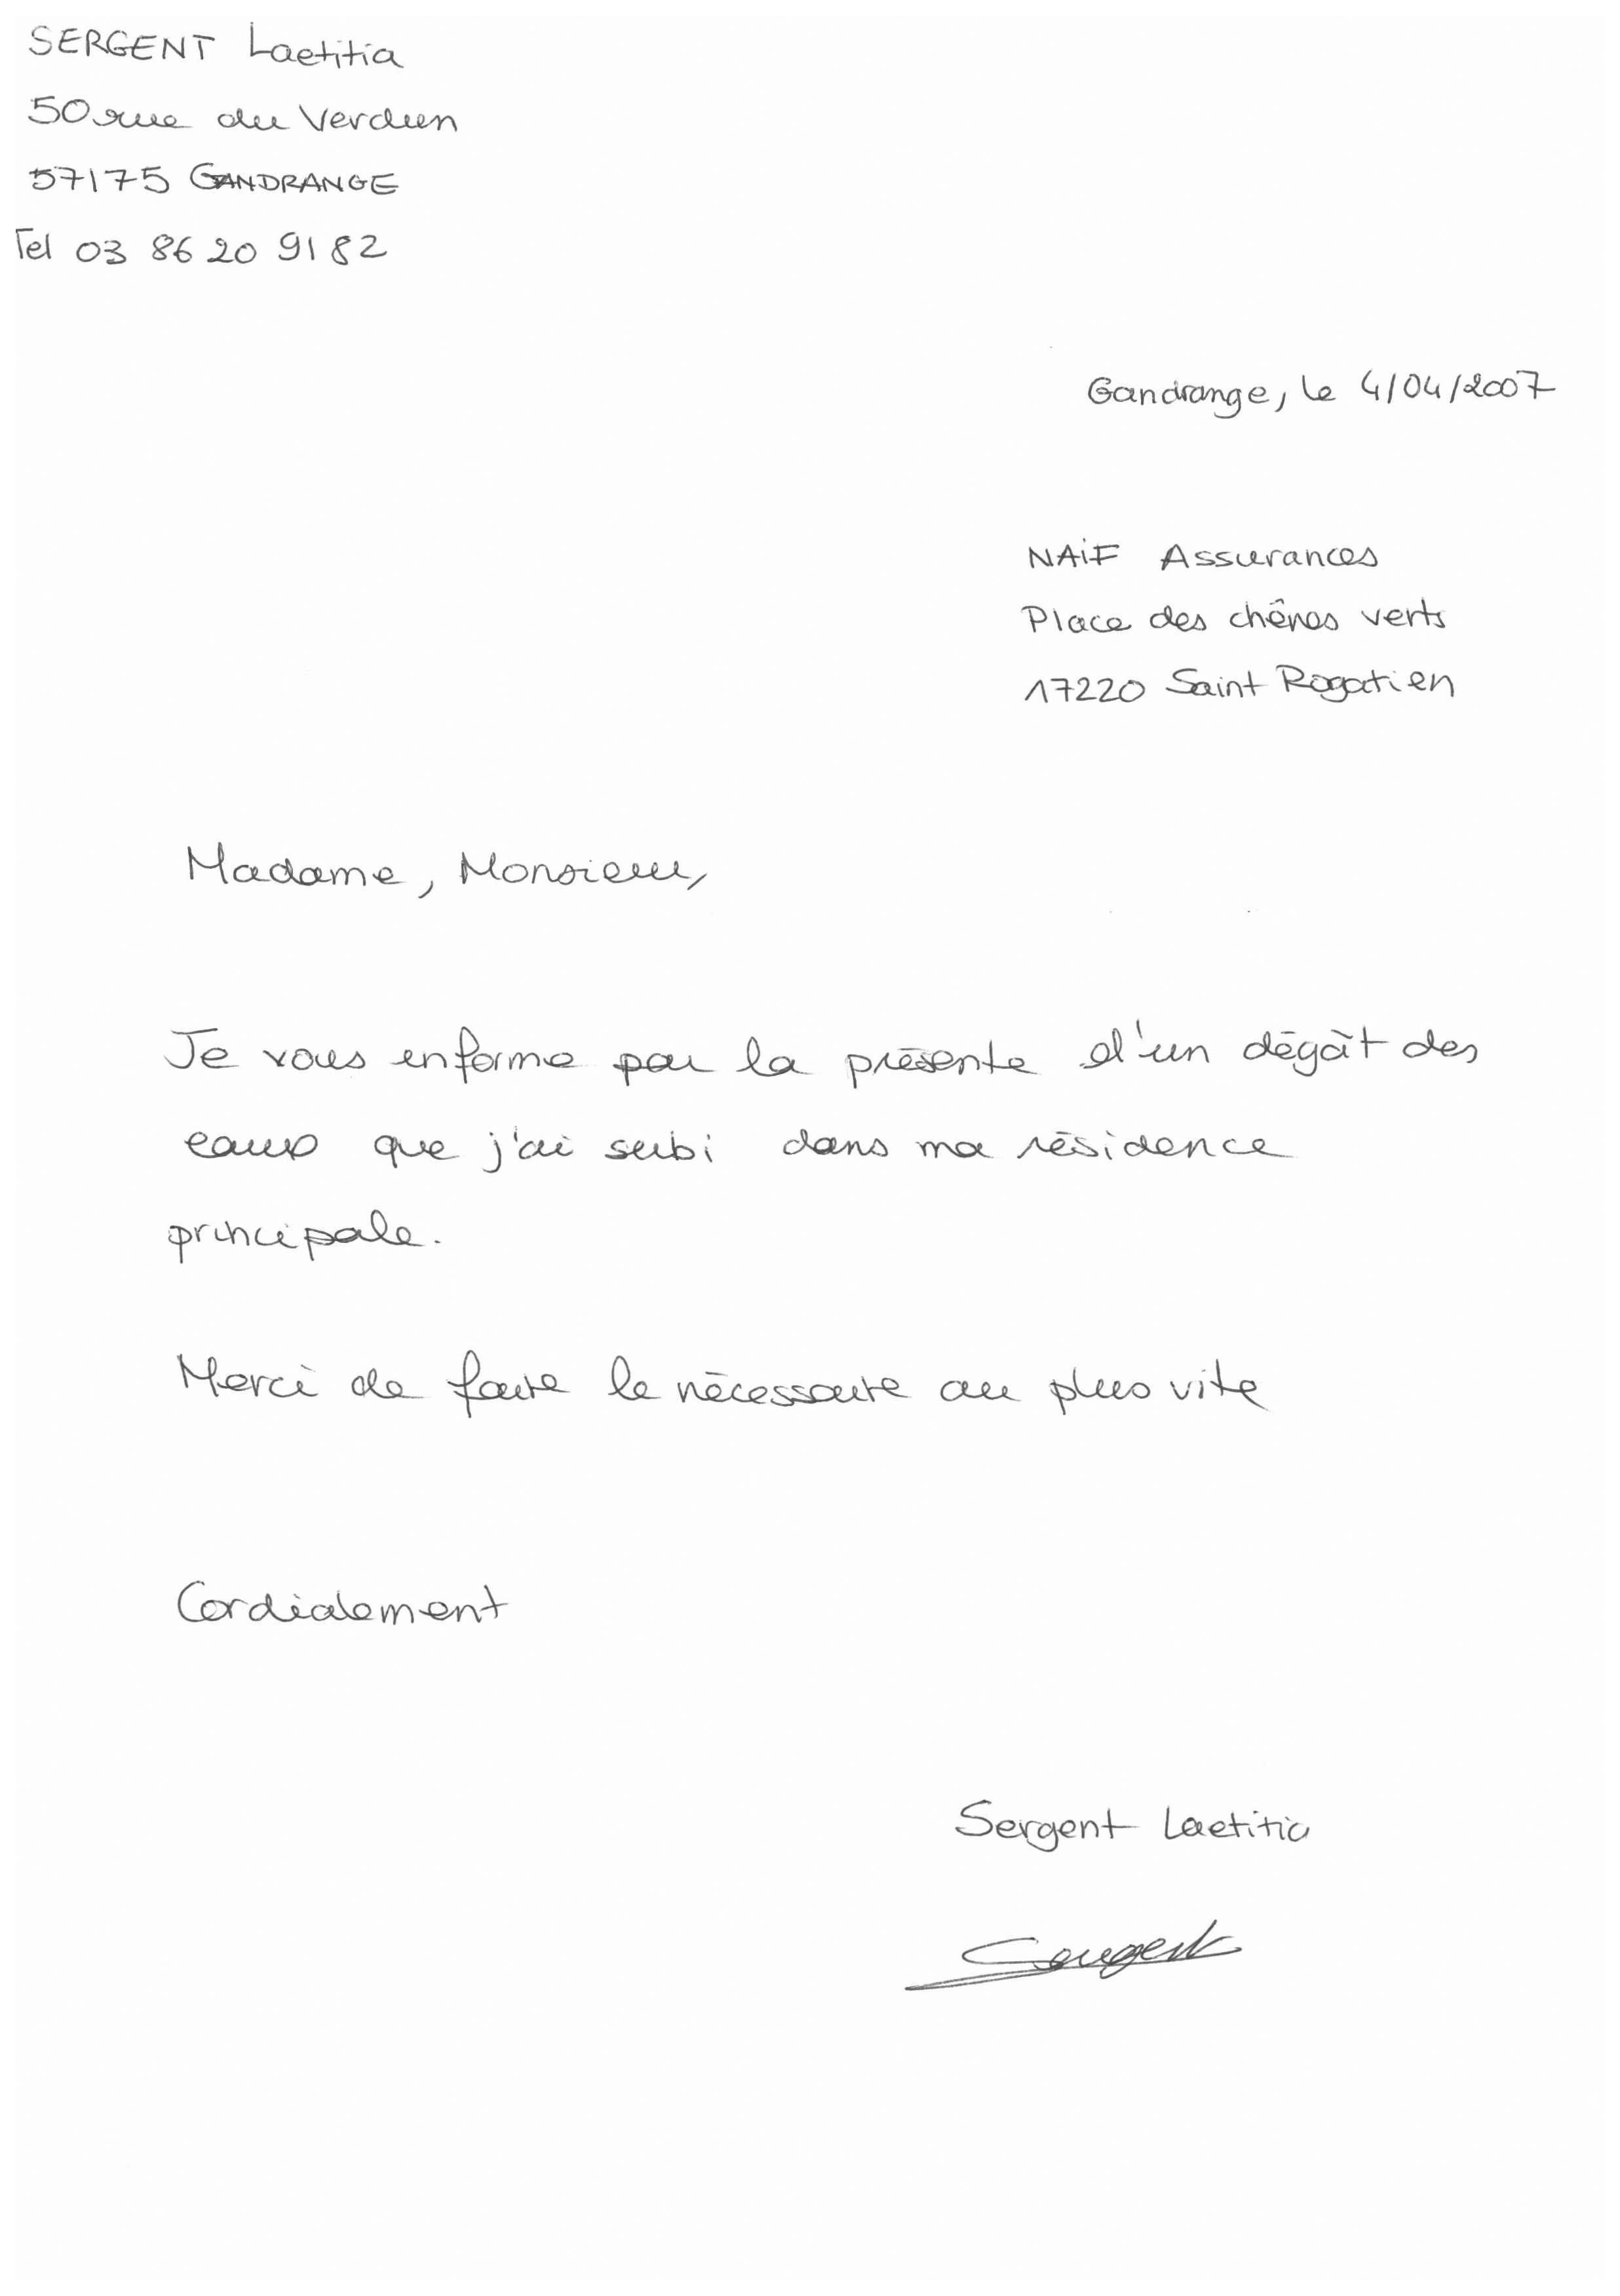 SERGENT Laetitia
50 rue du Verdun
57175 GANDRANGE
Tel 03 86 20 91 82
Gandrange, le 4/04/2007
NAiF Assurances
Place des chênes verts
17220 Saint Rogatien
Madame, Monsieur,
Je vous informe par la présente d'un dégât des
eaux que j'ai subi dans ma résidence
principale.
Merci de faire le nécessaire au plus vite
Cordialement
Sergent Laetitia
Sergent